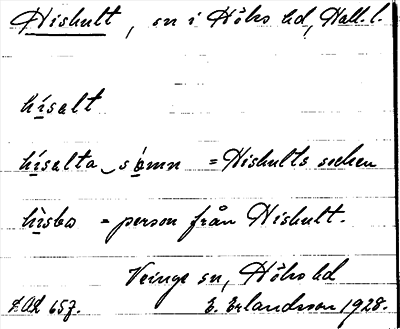 Hishult, sn i Höks hd, Hall. l.
hísalt
hísalta sómn = Hishults socken
hìsbo = person från Hishult.
Veinge sn, Höks hd
657. E. Erlandsson 1928.